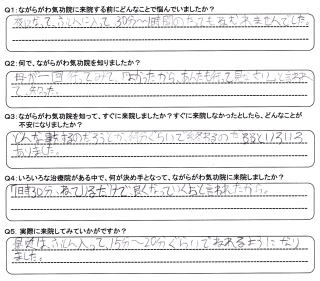 Q1:ながらがわ気功院に来院する前にどんなことで悩んでいましたか?
夜になって、ふとんに入って、30分~1時間のたってもねむれませんでした。
Q2:何で、ながらがわ気功院を知りましたか?
母が一回行ってみて、「よかったから、あんたも行って見なさい。」と言われ
て、知った。
Q3:ながらがわ気功院を知って、すぐに来院しましたか?すぐに来院しなかったとしたら、どんなことが
不安になりましたか?
どんな事するのだろうとか、何分ぐらいで終わるのだろうといろいろ
ありました。
Q4:いろいろな治療院がある中で、何が決め手となって、ながらがわ気功院に来院しましたか?
「1日30分、ねているだけで、良くなっていくよ」と言われたから。
Q5、実際に来院してみていかがですか?
最近は、ふとん入って、15分~20分ぐらいでねれるようになり
ました。